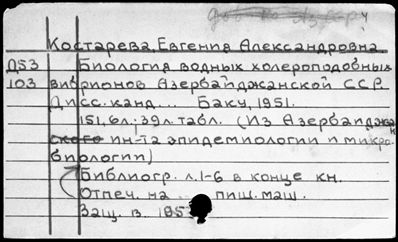 Костарева, Евгения Александровна
Д53 Биология водных холероподобных
103 вибрионов Азербайджанской ССР.
Дисс. канд... Баку, 1951.
151, 6л.; 39л. табл. (Из Азербайджан
ского ин-та эпидемиологии и микро-
биологии)
Библиогр. л. 1-6 в конце кн.
Отпеч. на .. пиш. маш.
Защ. в 195